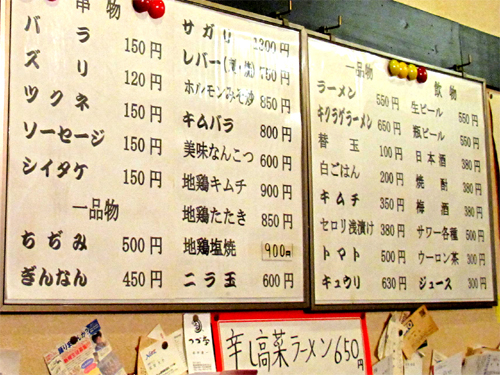 串物
バラ 150円
ズリ 120円
ツクネ 150円
ソーセージ 150円
シイタケ 150円
一品物
ちぢみ 500円
ぎんなん 450円
サガリ 1200円
レバー
ホルモンみそ炒 850円
キムバラ 800円
美味なんこつ 600円
地鶏キムチ 900円
地鶏たたき 850円
地鶏塩焼 900円
ニラ玉 600円
一品物
ラーメン 550円
キクラゲラーメン 650円
替玉 100円
白ごはん 200円
キムチ 350円
セロリ浅漬け 380円
トマト 500円
キュウリ 630円
飲物
生ビール 550円
瓶ビール 550円
日本酒 380円
焼酎 380円
梅酒 380円
サワー各種 500円
ウーロン茶 300円
ジュース 300円
辛し高菜ラーメン650円